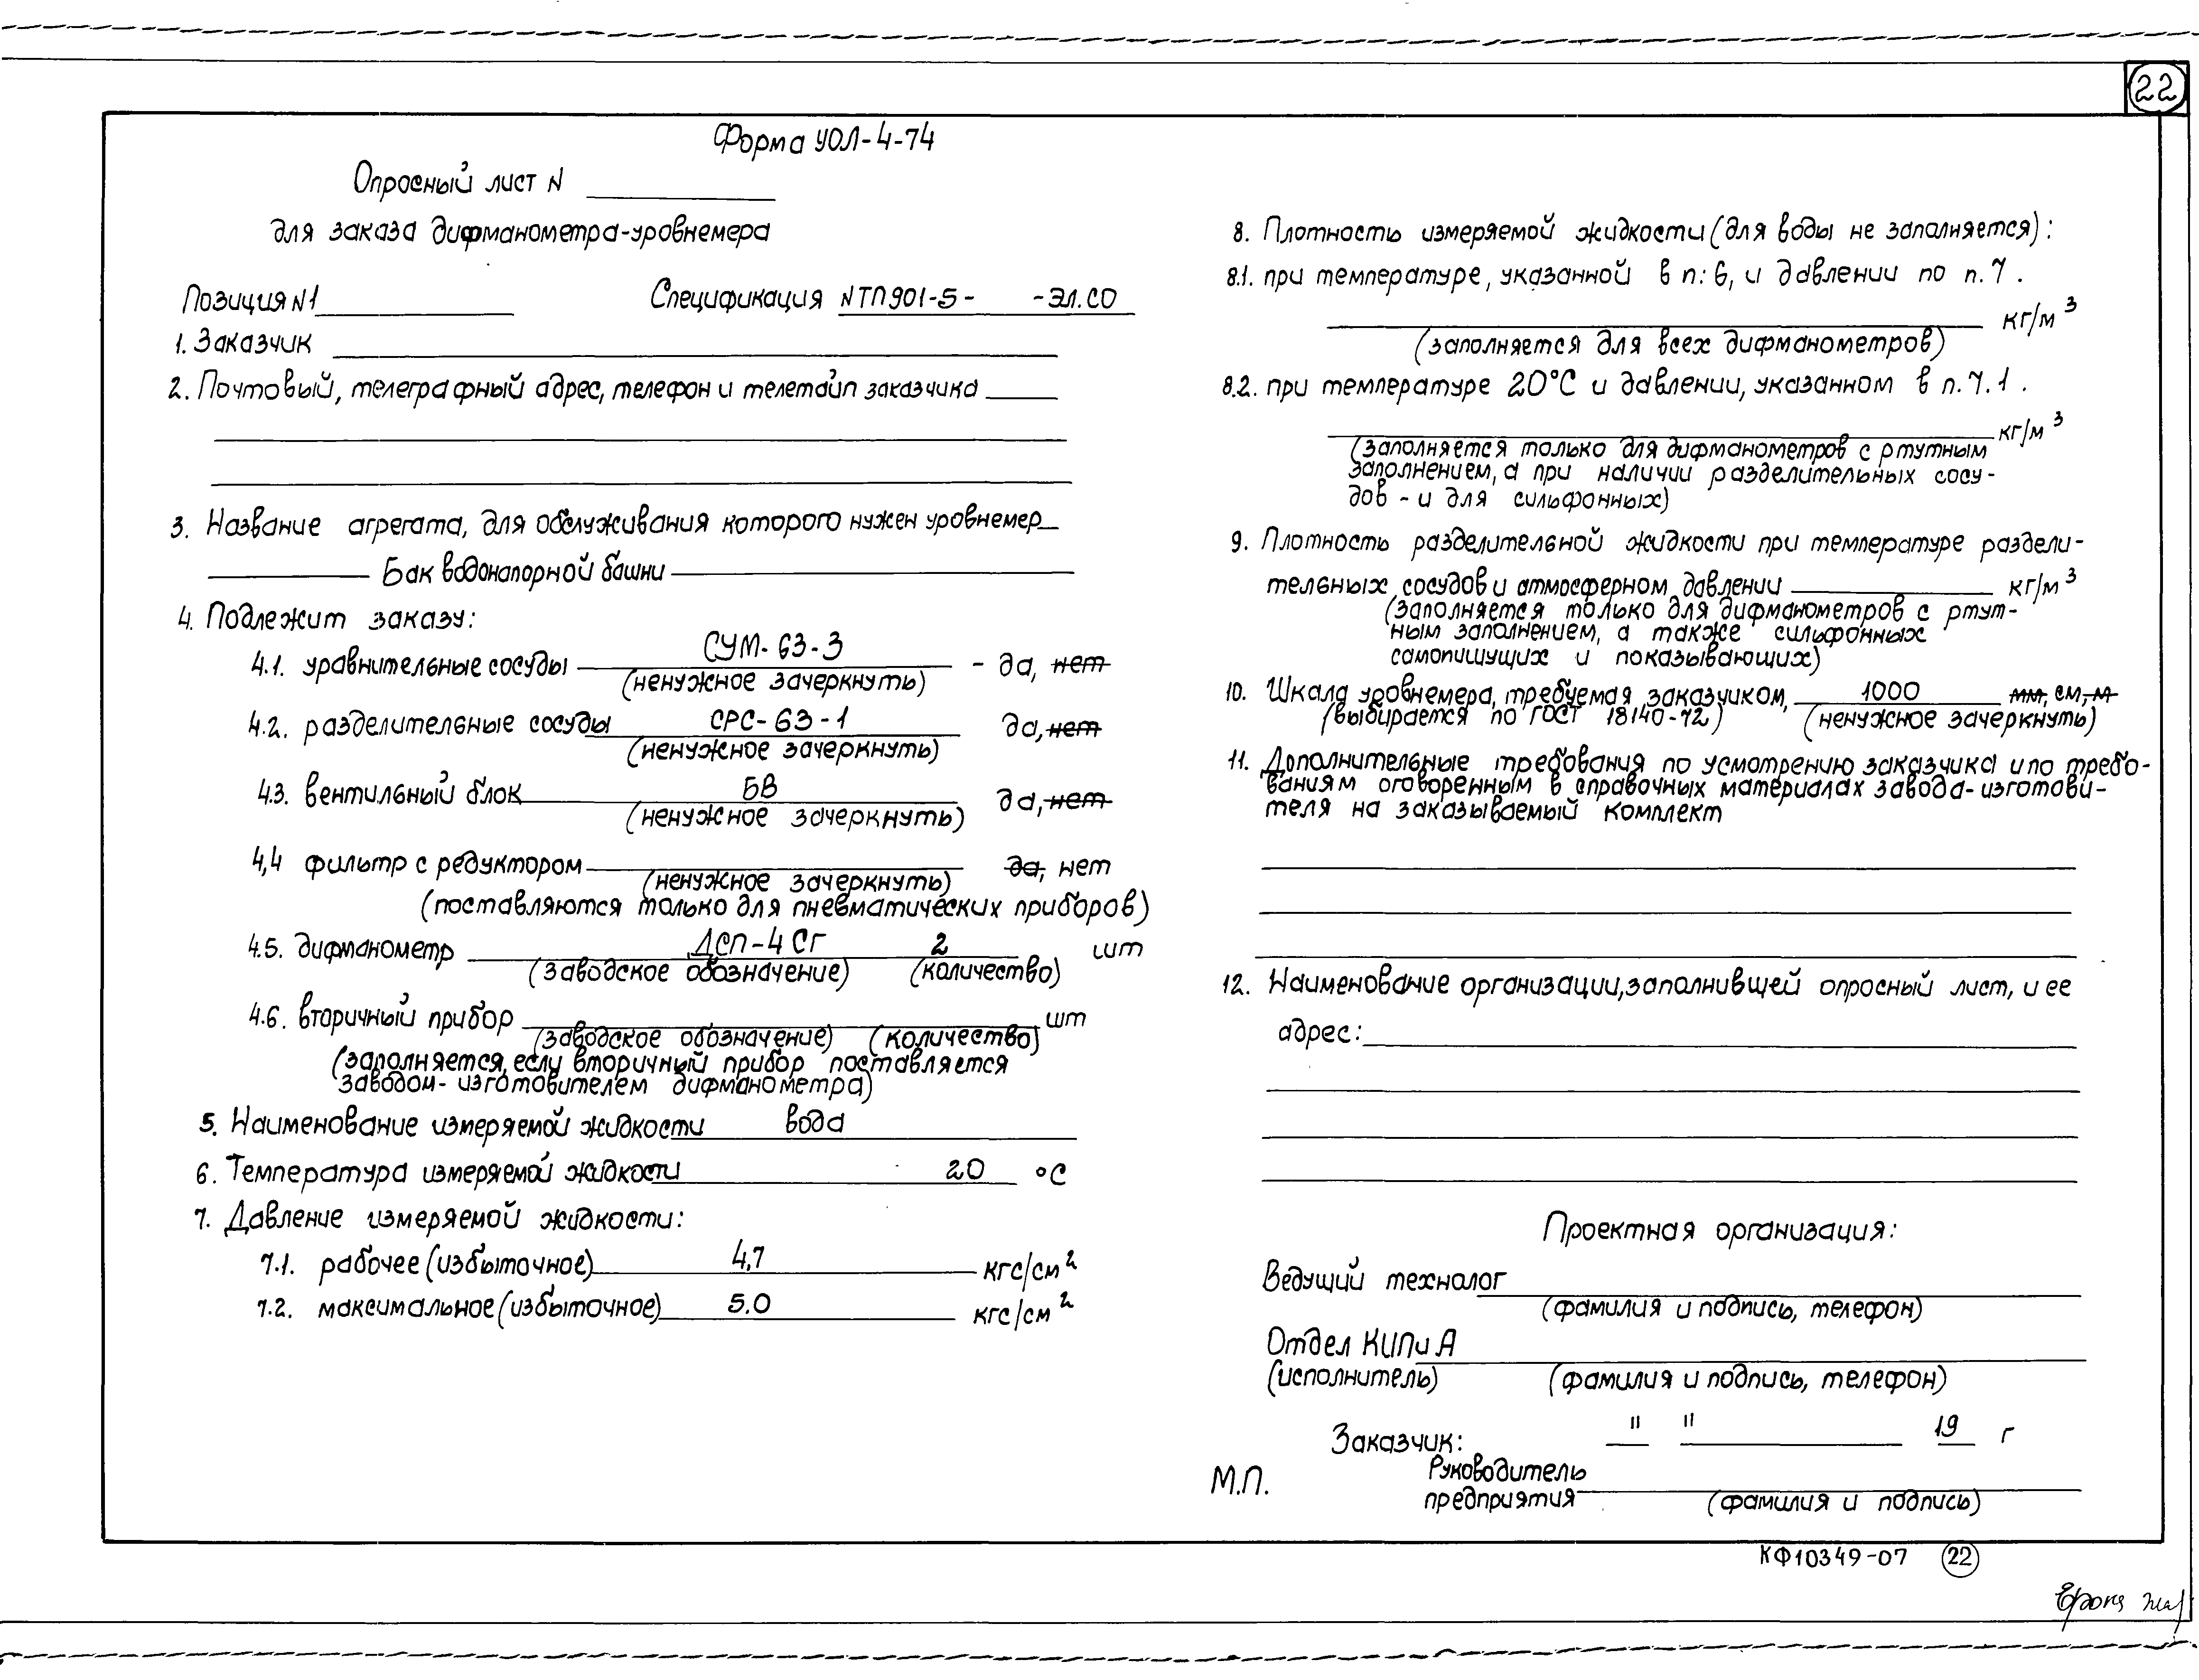 22
Форма УОЛ-4-74
Опросный лист N
для заказа дифманометра-уровнемера
Позиция N1 Спецификация NТП901-5- -ЭЛ.СО
1. Заказчик
2. Почтовый, телеграфный адрес, телефон и телетайп заказчика
3. Название агрегата, для обслуживания которого нужен уровнемер
Бак водонапорной башни
4. Подлежит заказу:
4.1. уравнительные сосуды СУМ-63-3 - да, нет
(ненужное зачеркнуть)
4.2. разделительные сосуды СРС-63-1 да, нет
(ненужное зачеркнуть)
4.3. вентильный блок БВ да, нет
(ненужное зачеркнуть)
4,4 фильтр с редуктором да, нет
(ненужное зачеркнуть)
(поставляются только для пневматических приборов)
4.5. дифманометр ДСП-4СГ 2 шт
(заводское обозначение) (количество)
4.6. вторичный прибор шт
(заводское обозначение) (количество)
(заполняется, если вторичный прибор поставляется
заводом-изготовителем дифманометра)
5. Наименование измеряемой жидкости вода
6. Температура измеряемой жидкости 20 °С
7. Давление измеряемой жидкости:
7.1. рабочее (избыточное) 4,7 кгс/см²
7.2. максимальное (избыточное) 5.0 кгс/см²
8. Плотность измеряемой жидкости (для воды не заполняется):
8.1. при температуре, указанной в п: 6, и давлении по п. 7.
кг/м³
(заполняется для всех дифманометров)
8.2. при температуре 20°С и давлении, указанном в п. 7.1.
кг/м³
(заполняется только для дифманометров с ртутным
заполнением, а при наличии разделительных сосу-
дов - и для сильфонных)
9. Плотность разделительной жидкости при температуре раздели-
тельных сосудов и атмосферном давлении кг/м³
(заполняется только для дифманометров с ртут-
ным заполнением, а также сильфонных
самопишущих и показывающих)
10. Шкала уровнемера, требуемая заказчиком, 1000 мм, см, м
(выбирается по ГОСТ 18140-72) (ненужное зачеркнуть)
11. Дополнительные требования по усмотрению заказчика и по требо-
ваниям оговоренным в справочных материалах завода-изготови-
теля на заказываемый комплект
12. Наименование организации, заполнившей опросный лист, и ее
адрес:
Проектная организация:
Ведущий технолог
(фамилия и подпись, телефон)
Отдел КИПиА
(исполнитель) (фамилия и подпись, телефон)
Заказчик: " " 19 г
М.П. Руководитель
предприятия (фамилия и подпись)
КФ10349-07 22